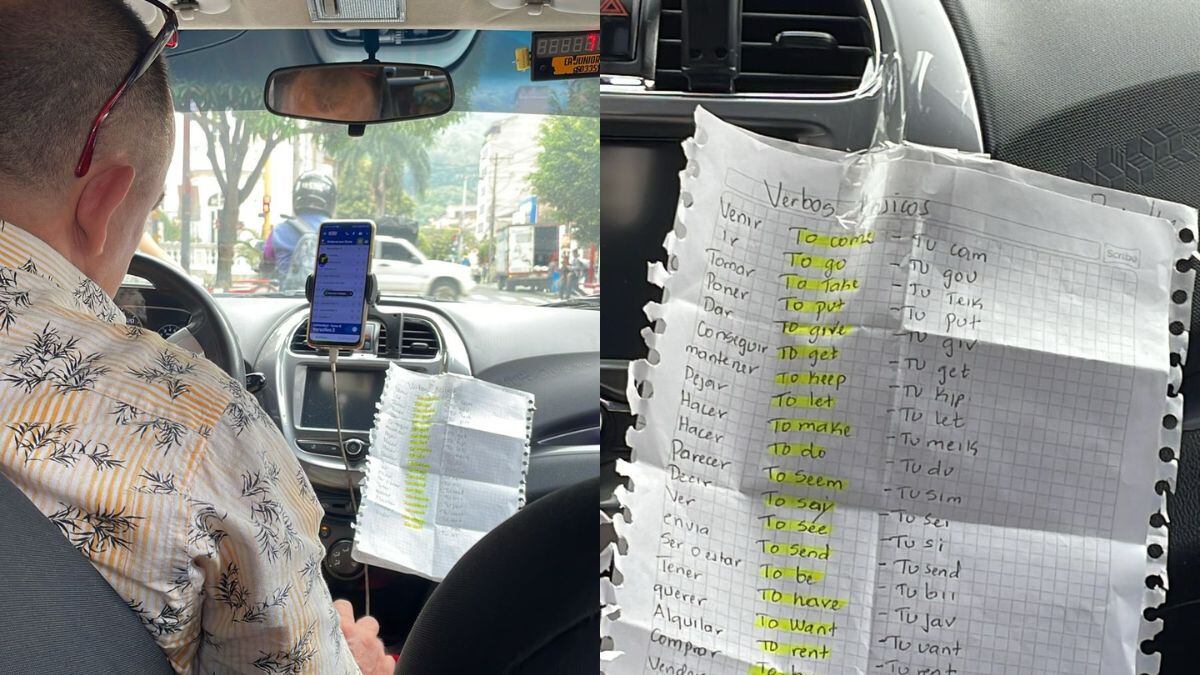 Verbos
Scribe
Venir To come - Tu cam
Ir To go - Tu gou
Tomar To Take - Tu Teik
Poner To put - Tu put
Dar To give - Tu giv
Conseguir To get - Tu get
mantener To keep - Tu kip.
Dejar To let - Tu let
Hacer To make - Tu meik
Hacer To do - Tu du
Parecer To Seem - Tu sim
Decir To say - To sei
Ver To see - Tu si
envia To send - Tu send
Ser o estar To be - Tu bii
Tener To have - Tu jav
querer To want - Tu vant
Alquilar To rent - Tu rent
Comprar To